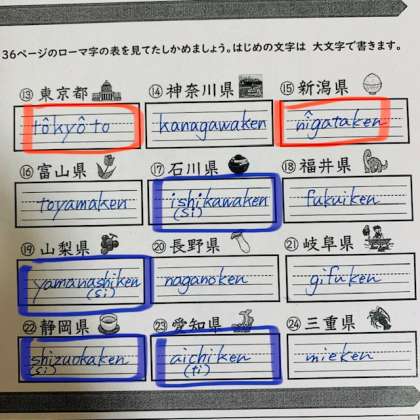 36ページのローマ字の表を見てたしかめましょう。はじめの文字は 大文字で書きます。
⑬ 東京都 ⑭ 神奈川県 ⑮ 新潟県
tôkyôto kanagawaken nîgataken
⑯ 富山県 ⑰ 石川県 ⑱ 福井県
toyamaken ishikawaken fukuiken
(si)
⑲ 山梨県 ⑳ 長野県 ㉑ 岐阜県
yamanashiken naganoken gifuken
(si)
㉒ 静岡県 ㉓ 愛知県 ㉔ 三重県
shizuokaken aichiken mieken
(si) (ti)